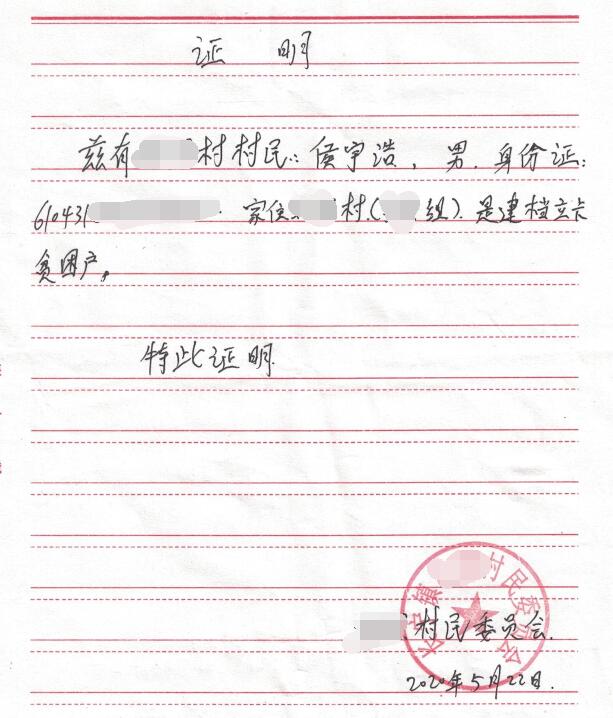 证 明
兹有 村村民:侯宇浩,男.身份证:
610431 家住 村( 组).是建档立卡
贫困户,
特此证明.
村民委员会.
2020年5月22日.
镇 村民委员会